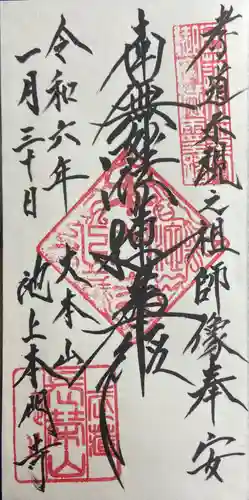 孝道示現之祖師像奉安
南無妙法蓮華経
令和六年
一月三十日
大本山
池上本門寺